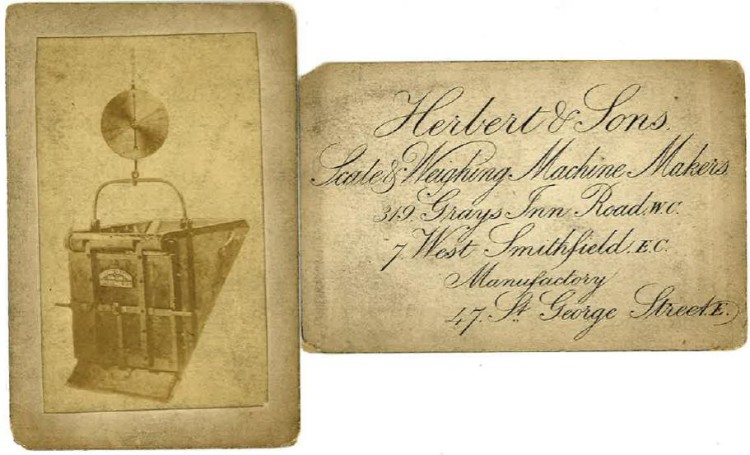 Herbert & Sons.
Scale & Weighing Machine Makers.
319 Grays Inn Road. W.C.
7 West Smithfield. E.C.
Manufactory
47. St. George Street. E.